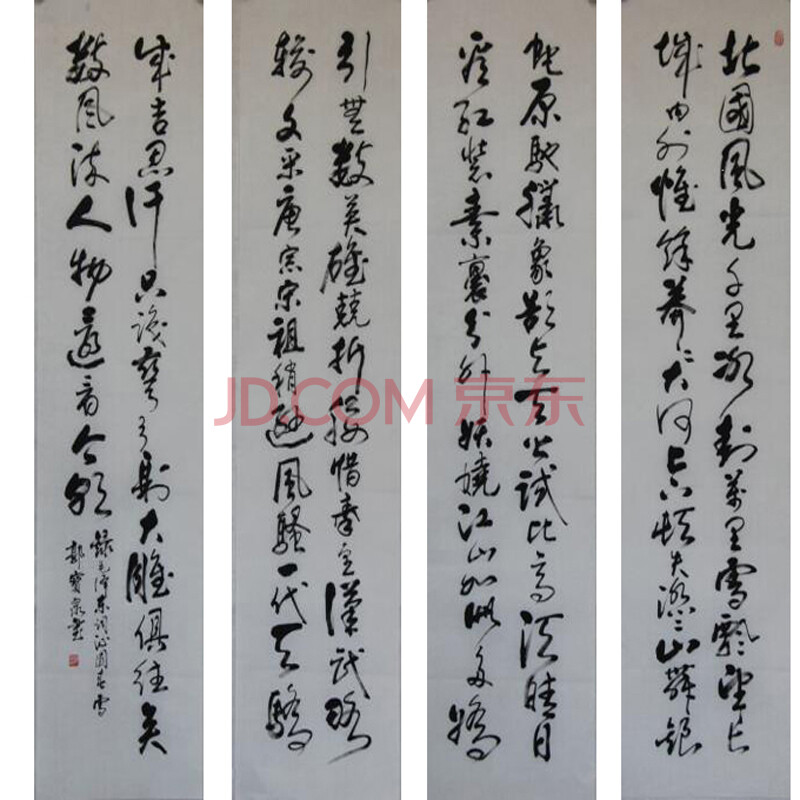 北國風光千里冰封萬里雪飄望長
城内外惟餘莽莽大河上下頓失滔滔山舞銀
蛇原馳臘象欲與天公試比高須晴日
看紅裝素裹分外妖嬈江山如此多嬌
引無數英雄競折腰惜秦皇漢武略
輸文采唐宗宋祖稍遜風騷一代天驕
成吉思汗只識彎弓射大雕俱往矣
數風流人物還看今朝
錄毛澤東詞沁園春雪
郭寶泉書
JD.COM 京东